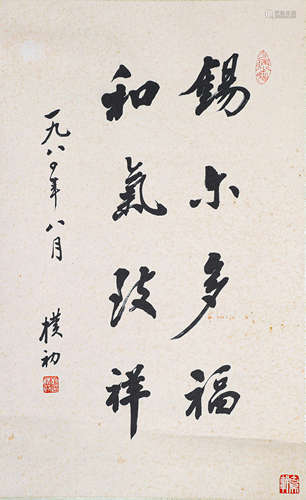 锡尔多福
和氣致祥
一九八〇年八月
樸初